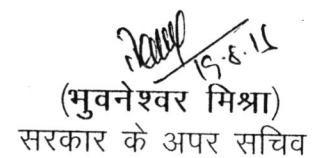 19.8.15
(भुवनेश्वर मिश्रा)
सरकार के अपर सचिव